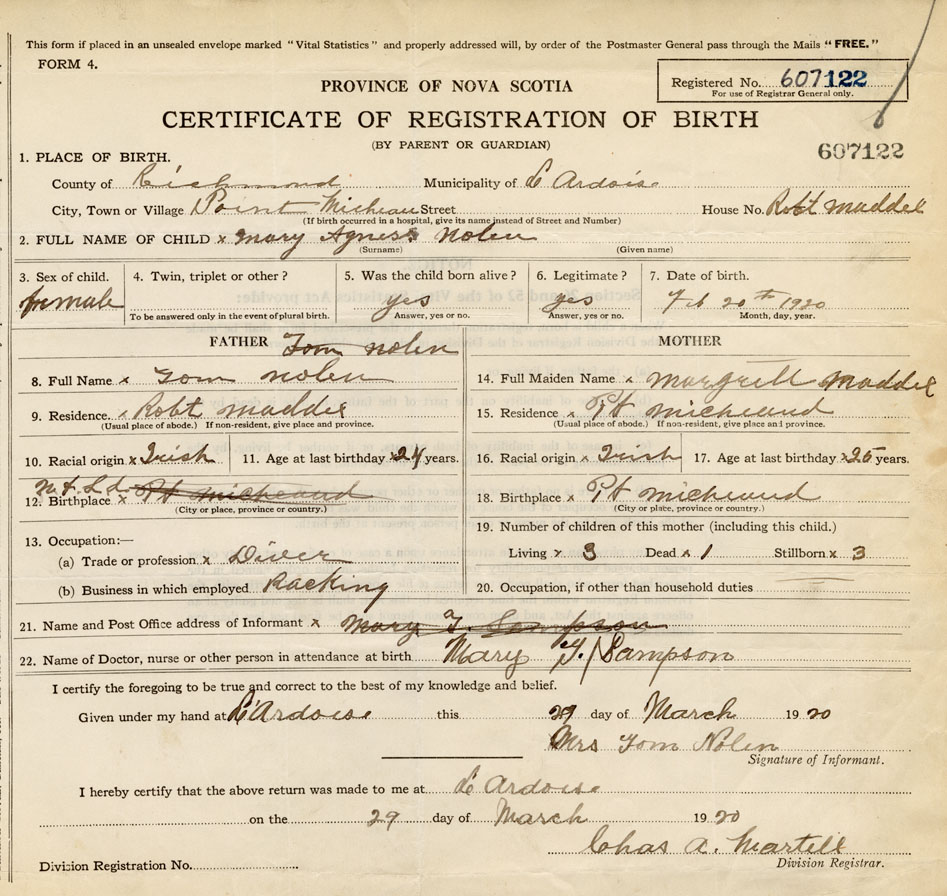 This form if placed in an unsealed envelope marked "Vital Statistics" and properly addressed will, by order of the Postmaster General pass through the Mails "FREE."
FORM 4.
PROVINCE OF NOVA SCOTIA
Registered No. 607122
For use of Registrar General only.
CERTIFICATE OF REGISTRATION OF BIRTH
(BY PARENT OR GUARDIAN)
607122
1. PLACE OF BIRTH.
County of Richmond Municipality of L'Ardoise
City, Town or Village Point Micheau Street House No. Robt Madden
(If birth occurred in a hospital, give its name instead of Street and Number)
2. FULL NAME OF CHILD x Mary Agness Nolen
(Surname) (Given name)
3. Sex of child. 4. Twin, triplet or other? 5. Was the child born alive? 6. Legitimate? 7. Date of birth.
female yes yes Feb 20th 1920
To be answered only in the event of plural birth. Answer, yes or no. Answer, yes or no. Month, day, year.
FATHER Tom Nolen MOTHER
8. Full Name x Tom Nolen 14. Full Maiden Name x Margrett Madden
9. Residence. x Robt Madden 15. Residence x Pt Micheaud
(Usual place of abode.) If non-resident, give place and province. (Usual place of abode.) If non-resident, give place and province.
10. Racial origin x Irish 11. Age at last birthday x 24 years. 16. Racial origin x Irish 17. Age at last birthday x 25 years.
12. Birthplace x Nfld Pt Micheaud 18. Birthplace x Pt Micheaud
(City or place, province or country.) (City or place, province or country.)
19. Number of children of this mother (including this child.)
13. Occupation:—
(a) Trade or profession x Diver Living x 3 Dead x 1 Stillborn x 3
(b) Business in which employed Racking 20. Occupation, if other than household duties
21. Name and Post Office address of Informant x Mary J. Sampson
22. Name of Doctor, nurse or other person in attendance at birth Mary J. Sampson
I certify the foregoing to be true and correct to the best of my knowledge and belief.
Given under my hand at L'Ardoise this 29 day of March 1920
Mrs Tom Nolen
Signature of Informant.
I hereby certify that the above return was made to me at L'Ardoise
on the 29 day of March 1920
Chas A. Martell
Division Registration No. Division Registrar.